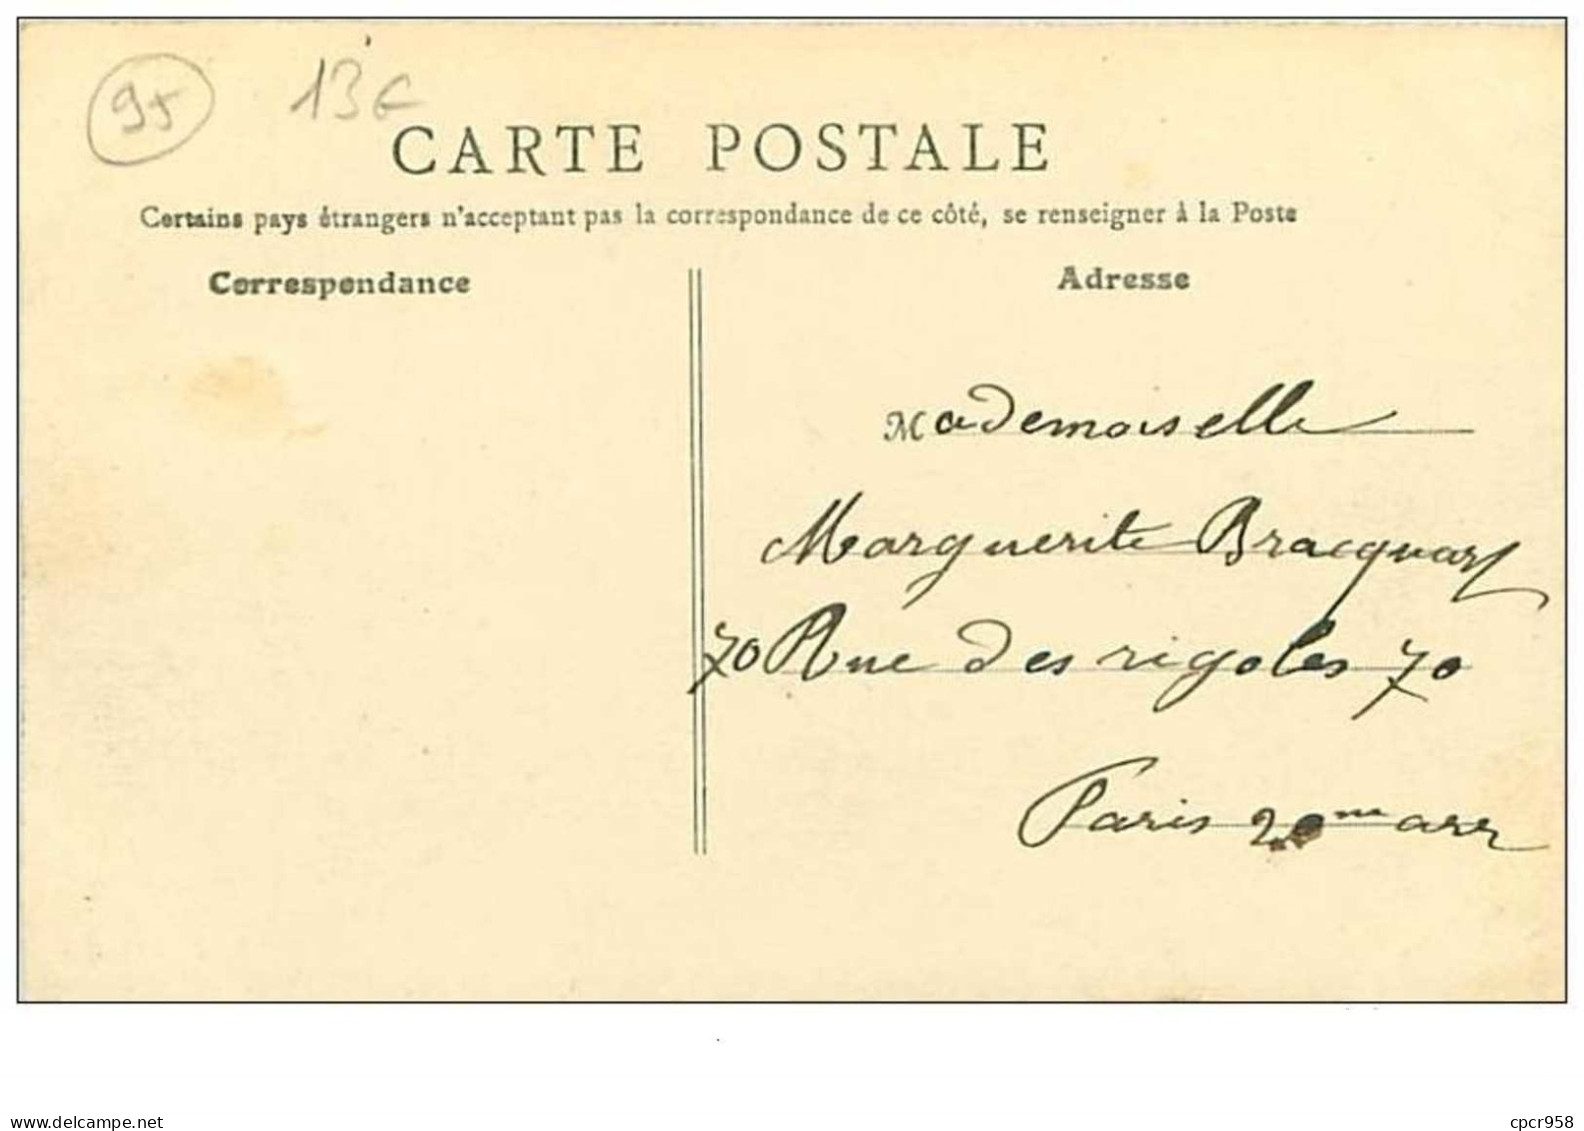 95 13€
CARTE POSTALE
Certains pays étrangers n'acceptant pas la correspondance de ce côté, se renseigner à la Poste
Correspondance
Adresse
Mademoiselle
Marguerite
70 Rue des rigoles 70
Paris 20me arr
delcampe.net
cpcr958